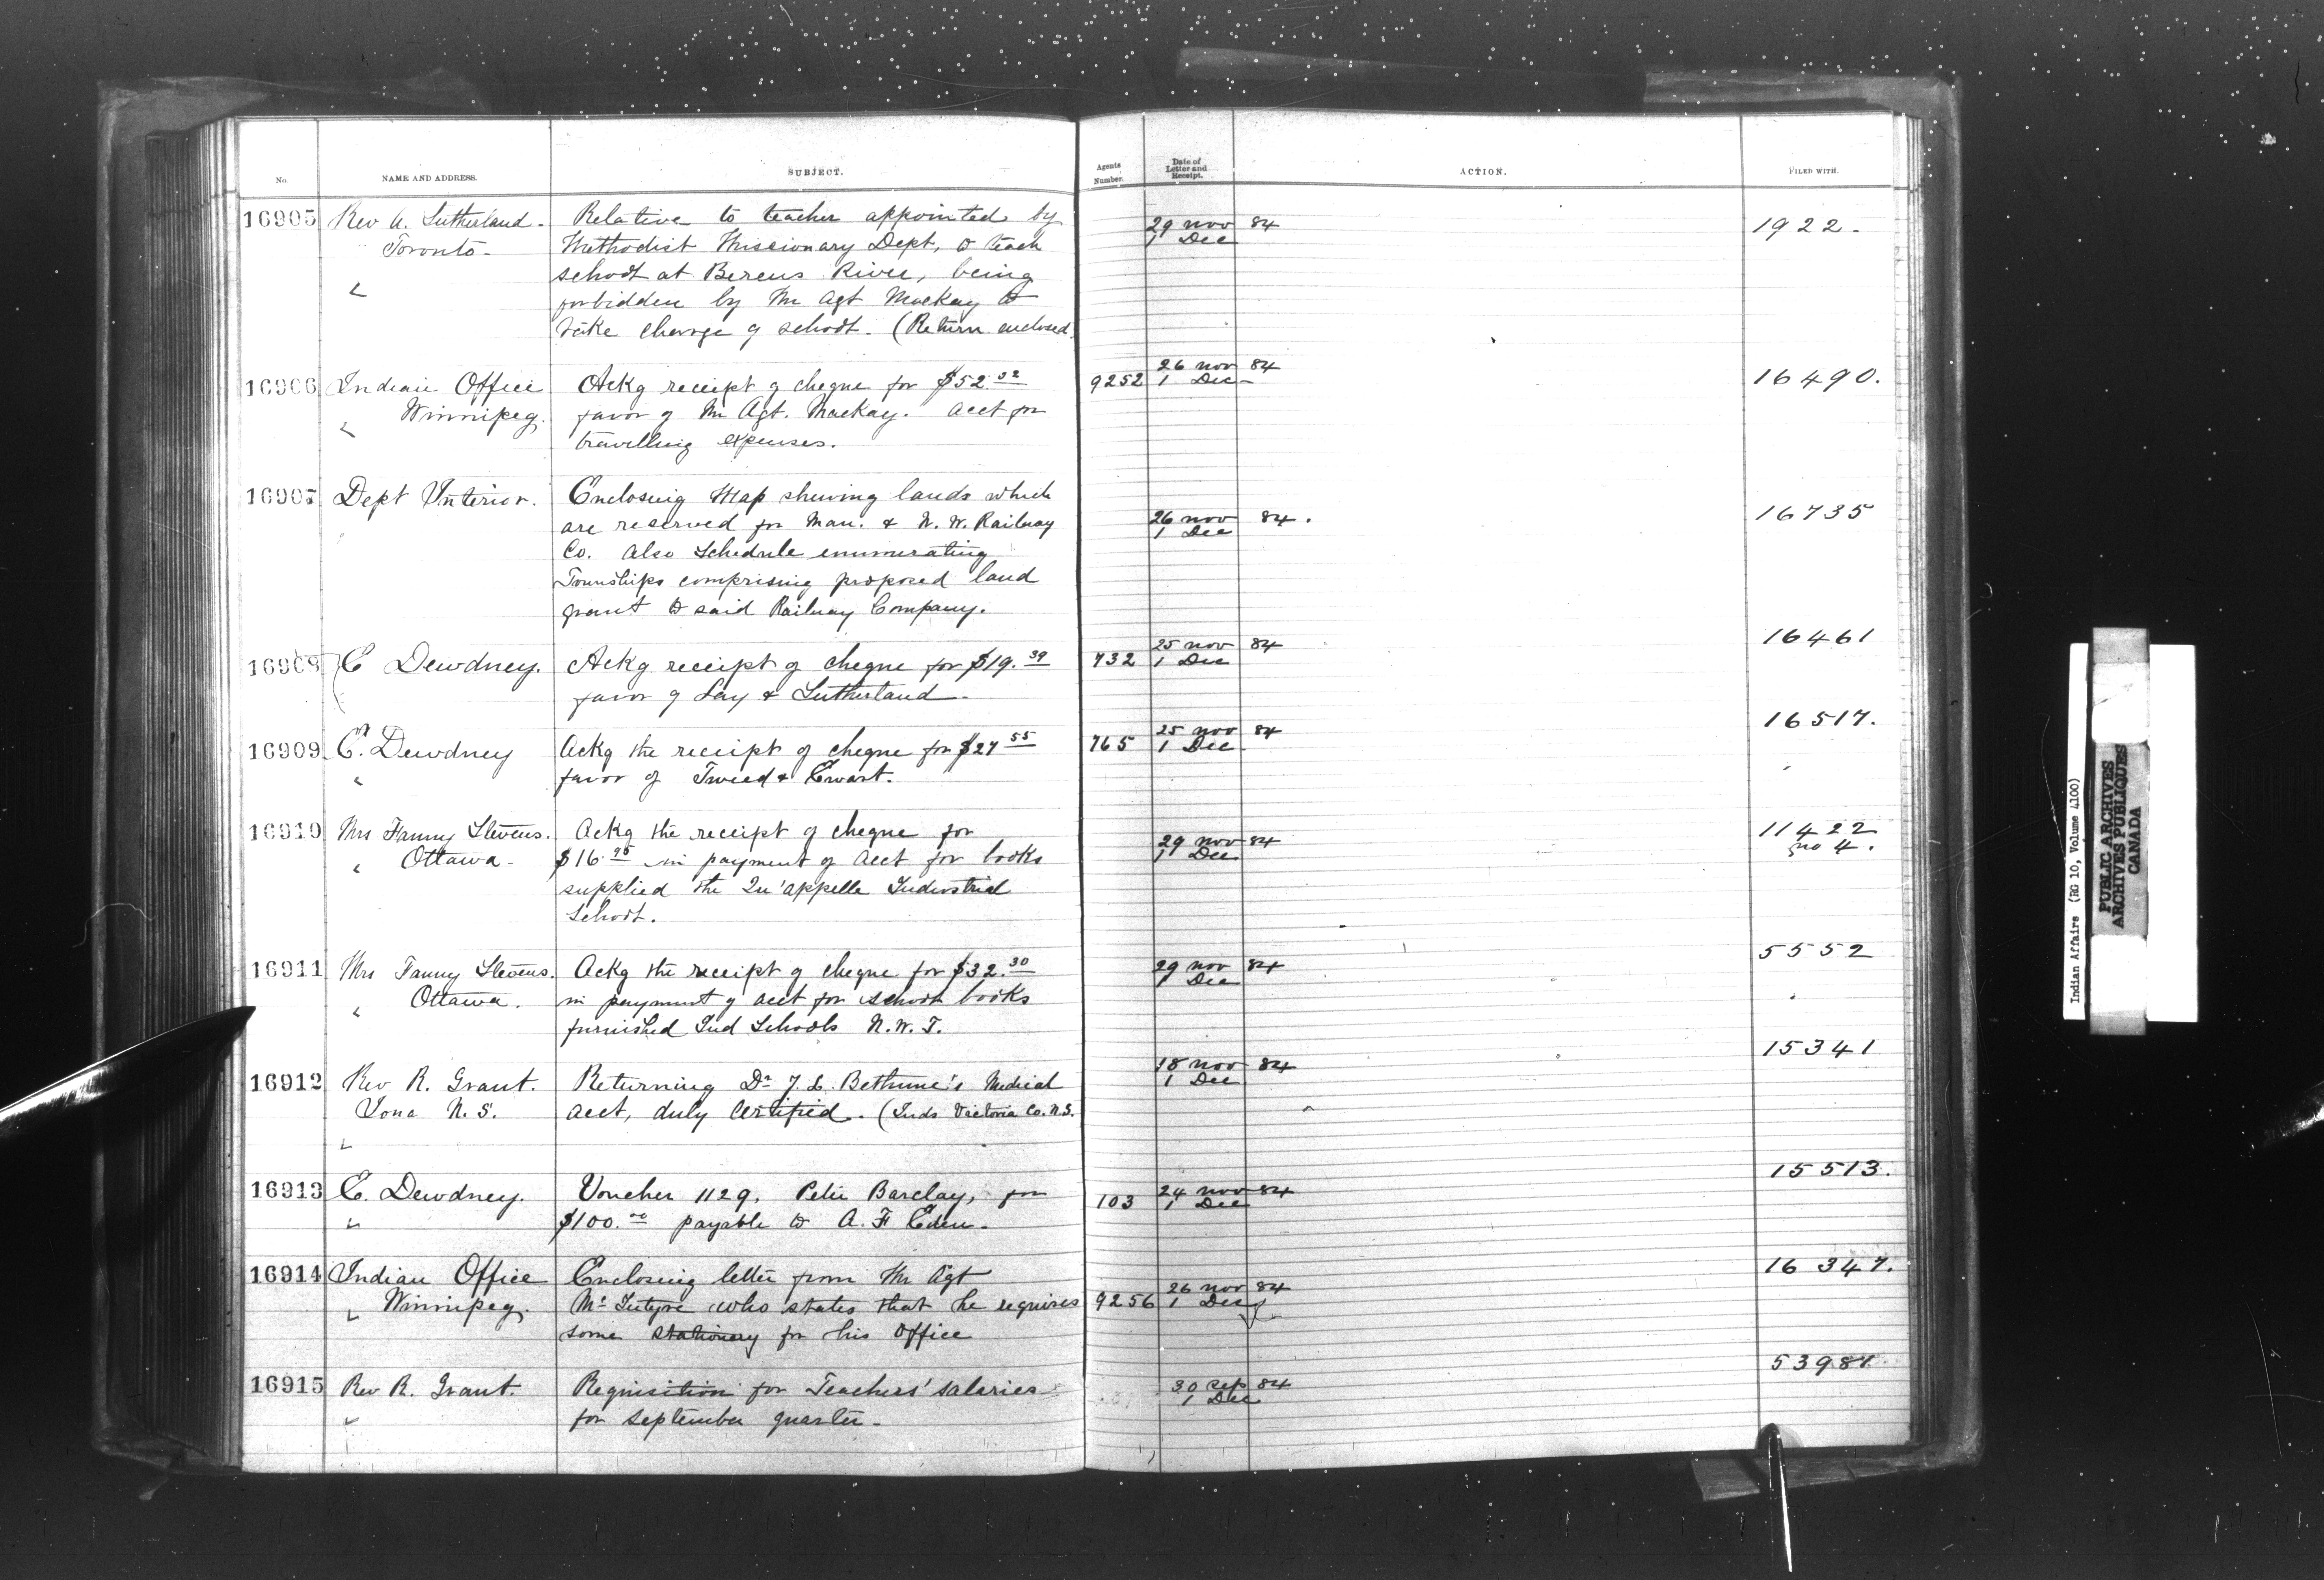 No.
NAME AND ADDRESS.
SUBJECT.
Agents Number.
Date of Letter and Receipt.
ACTION.
FILED WITH.
16905 Rev A. Sutherland - Relative to teacher appointed by 29 Nov 84 1922.
Toronto - Methodist Missionary Dept, to teach 1 Dec
school at Berens River, being
forbidden by Mr Agt Mackay to
take charge of school. (Return enclosed
16906 Indian Office Ackg receipt of cheque for $52.32 9252 26 Nov 84 16490.
Winnipeg. favor of Mr Agt. Mackay. acct for 1 Dec
travelling expenses.
16907 Dept Interior. Enclosing Map shewing lands which 26 Nov 84. 16735
are reserved for Man. & N. W. Railway 1 Dec
Co. Also Schedule enumerating
Townships comprising proposed land
grant to said Railway Company.
16908 E Dewdney. Ackg receipt of cheque for $19.39 732 25 Nov 84 16461
favor of Lay & Sutherland - 1 Dec
16909 E. Dewdney Ackg the receipt of cheque for $27 55 765 25 Nov 84 16517.
favor of Tweed & Ewart. 1 Dec
16910 Mrs Fanny Stevens. Ackg the receipt of cheque for 29 Nov 84 11422
Ottawa - $16.95 in payment of acct for books 1 Dec no 4.
supplied the Qu'appelle Industrial
School.
16911 Mrs Fanny Stevens. Ackg the receipt of cheque for $32.30 29 Nov 84 5552
Ottawa. in payment of acct for school books 1 Dec
furnished Ind Schools N.W.T.
16912 Rev R. Grant. Returning Dr J. L. Bethune's Medical 18 Nov 84 15341
Iona N.S. acct, duly certified. (Inds Victoria Co. N.S. 1 Dec
16913 E. Dewdney. Voucher 1129, Peter Barclay, for 103 24 Nov 84 15513.
$100.00 payable to A. F Eden - 1 Dec
16914 Indian Office Enclosing letter from Mr Agt 26 Nov 84 16347.
Winnipeg. McIntyre who states that he requires 9256 1 Dec
some stationery for his office
16915 Rev R. Grant. Requisition for Teachers' salaries 30 Sep 84 53981
for September quarter - 1 Dec
Indian Affairs (RG 10, Volume 4100)
PUBLIC ARCHIVES
ARCHIVES PUBLIQUES
CANADA